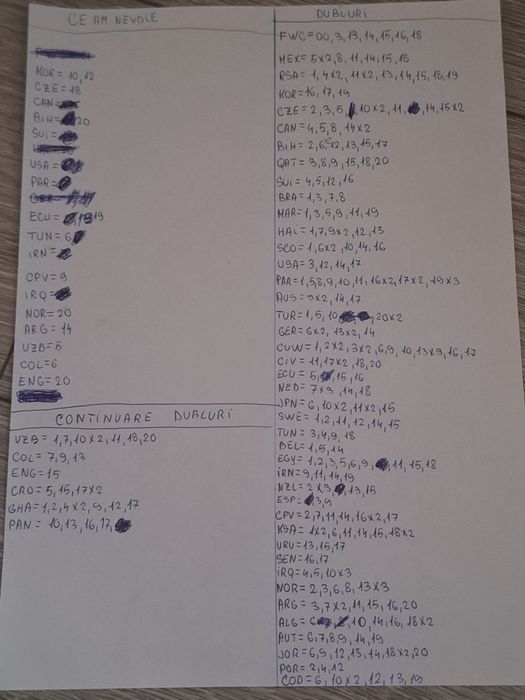 CE AM NEVOIE
KOR= 10,12
CZE= 18
CAN=
BIH= 20
SUI=
USA=
PAR=
ECU= 19
TUN= 6
IRN=
CPV= 9
IRQ=
NOR= 20
ARG= 14
UZB= 5
COL=6
ENG=20
CONTINUARE DUBLURI
UZB= 1,7,10x2,11,18,20
COL= 7,9,13
ENG=15
CRO= 5,15,17x2
GHA=1,2,4x2,9,12,17
PAN= 10,13,16,17,
DUBLURI
FWC=00,3,13,14,15,16,18
MEX= 5x2,8,11,14,15,18
RSA= 1,4x2,11x2,13,14,15,18,19
KOR=16,17,19
CZE= 2,3,5, 10x2,11, 14,15x2
CAN=4,5,8,14x2
BIH= 2,6,12,13,15,17
QAT= 3,8,9,15,18,20
SUI= 4,5,12,16
BRA= 1,3,7,8
MAR= 1,3,5,9,11,19
HAI= 1,7,9x2,12,13
SCO= 1,6x2,10,14,16
USA= 3,12,14,17
PAR=1,5,8,9,10,11,16x2,17x2,19x3
AUS= 9x2,14,17
TUR= 1,5,10 20x2
GER= 6x2,13x2,14
CUW=1,2x2,3x2,6,9,10,13x3,16,17
CIV= 11,17x2,18,20
ECU= 5, 15,16
NED= 7x3,14,18
JPN= 6,10x2,11x2,15
SWE= 1,2,11,12,14,15
TUN= 3,4,9,18
BEL= 1,5,14
EGY= 1,2,3,5,6,9, 11,15,18
IRN= 9,11,14,19
NZL= 2x3, 13,15
ESP= 3,9
CPV= 2,7,11,14,16x2,17
KSA= 1x2,6,11,14,15,18x2
URU=13,15,17
SEN=16,17
IRQ=4,5,10x3
NOR= 2,3,6,8,13x3
ARG= 3,7x2,11,15,16,20
ALG= 6 10,14,16,18x2
AUT= 6,7,8,9,14,19
JOR= 6,9,12,13,14,18x2,20
POR= 2,4,12
COD= 6,10x2,12,13,19